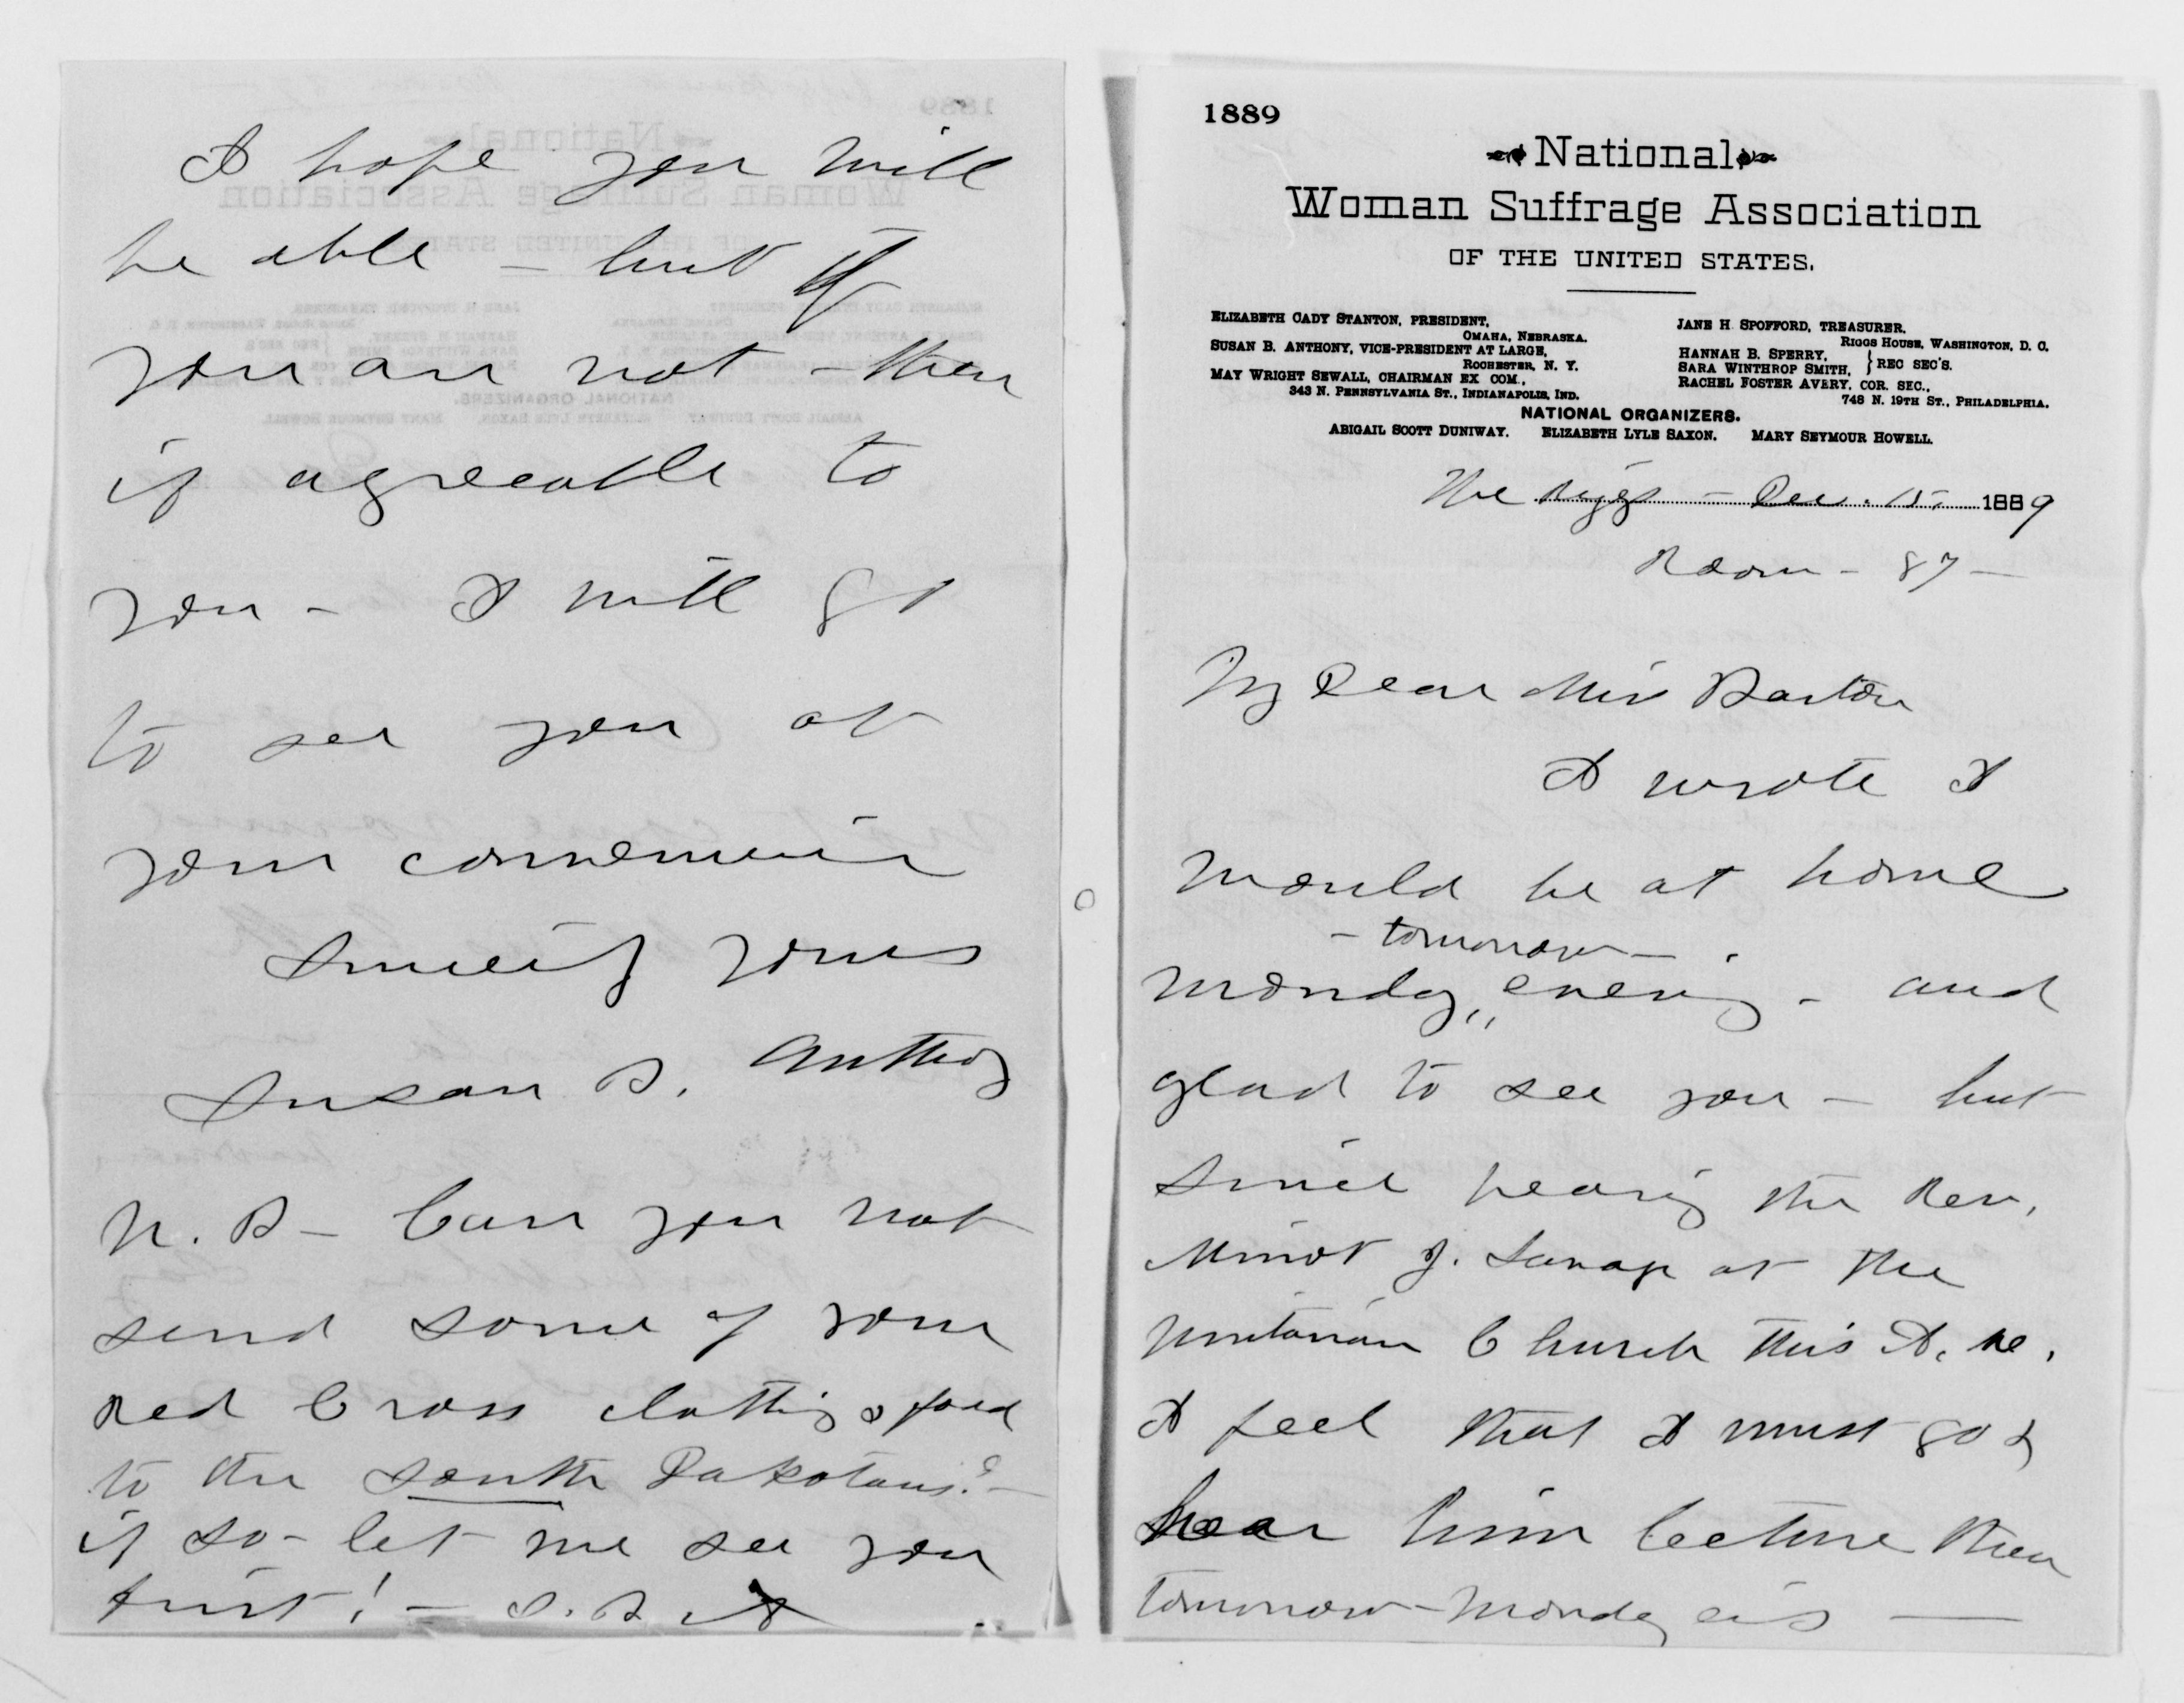 1889
National
Woman Suffrage Association
OF THE UNITED STATES.
ELIZABETH CADY STANTON, PRESIDENT,
OMAHA, NEBRASKA.
SUSAN B. ANTHONY, VICE-PRESIDENT AT LARGE,
ROCHESTER, N. Y.
MAY WRIGHT SEWALL, CHAIRMAN EX COM.,
343 N. PENNSYLVANIA ST., INDIANAPOLIS, IND.
JANE H. SPOFFORD, TREASURER,
RIGGS HOUSE, WASHINGTON, D. C.
HANNAH B. SPERRY,
SARA WINTHROP SMITH, } REC SEC'S.
RACHEL FOSTER AVERY, COR. SEC.,
748 N. 19TH ST., PHILADELPHIA.
NATIONAL ORGANIZERS.
ABIGAIL SCOTT DUNIWAY. ELIZABETH LYLE SAXON. MARY SEYMOUR HOWELL.
The Riggs - Dec. 15, 1889
Room - 87 -
My Dear Miss Barton
I wrote I
would be at home
- tomorrow -
Monday, evening - and
glad to see you - but
since hearing the Rev.
Minot J. Savage at the
Unitarian Church this A. M.
I feel that I must go &
hear him lecture there
tomorrow - Monday eve's -
I hope you will
be able - but if
you are not - then
if agreeable to
you - I will go
to see you at
your convenience
Sincerely yours
Susan B. Anthony
N. B - Can you not
send some of your
Red Cross clothing & food
to the South Dakotans? -
if so - let me see you
first! - S. B. A